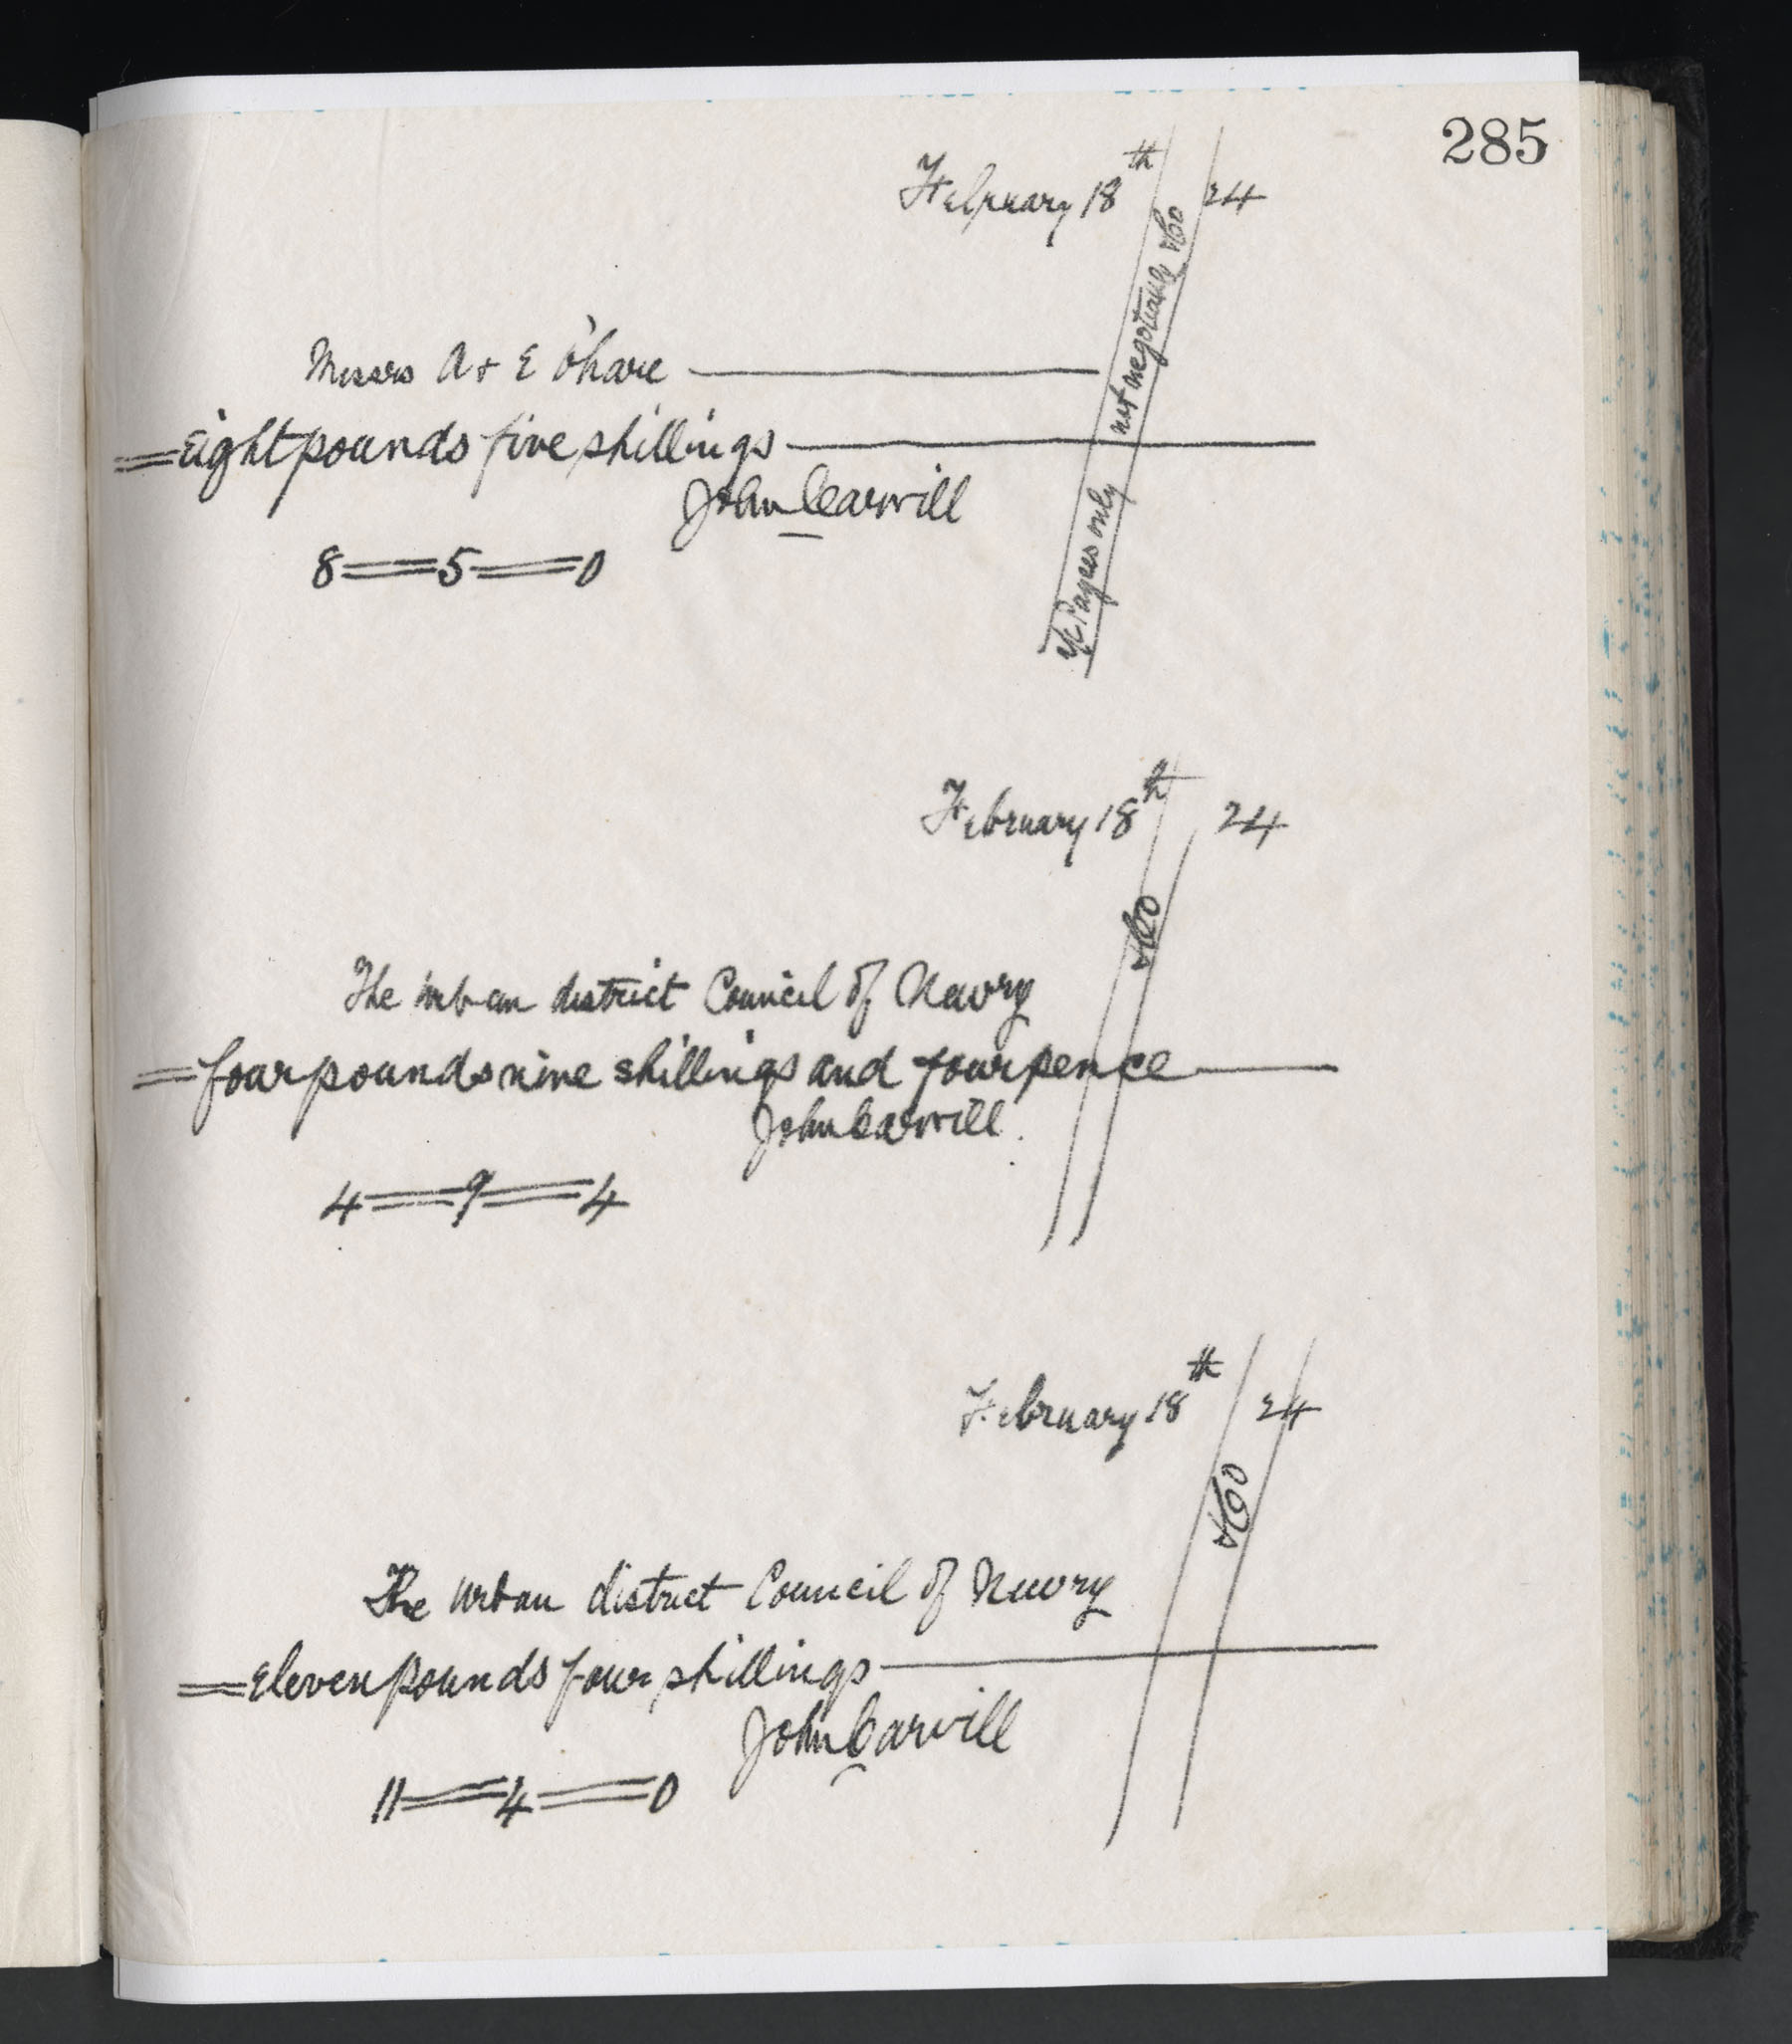 285
February 18th 24
Messrs A + E O'hare
Eight pounds five shillings
John Carvill
8 == 5 == 0
a/c Payees only not negotiable &Co
February 18th 24
The urban district Council of Newry
four pounds nine shillings and fourpence
John Carvill
4 == 9 == 4
&Co
February 18th 24
The urban district Council of Newry
Eleven pounds four shillings
John Carvill
11 == 4 == 0
&Co